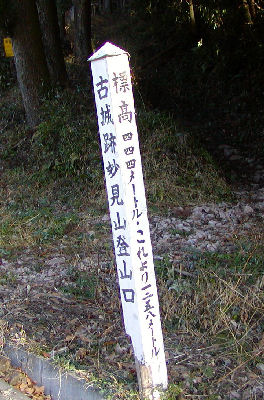 標高四四四メートル・これより一三八メートル
古城跡妙見山登山口